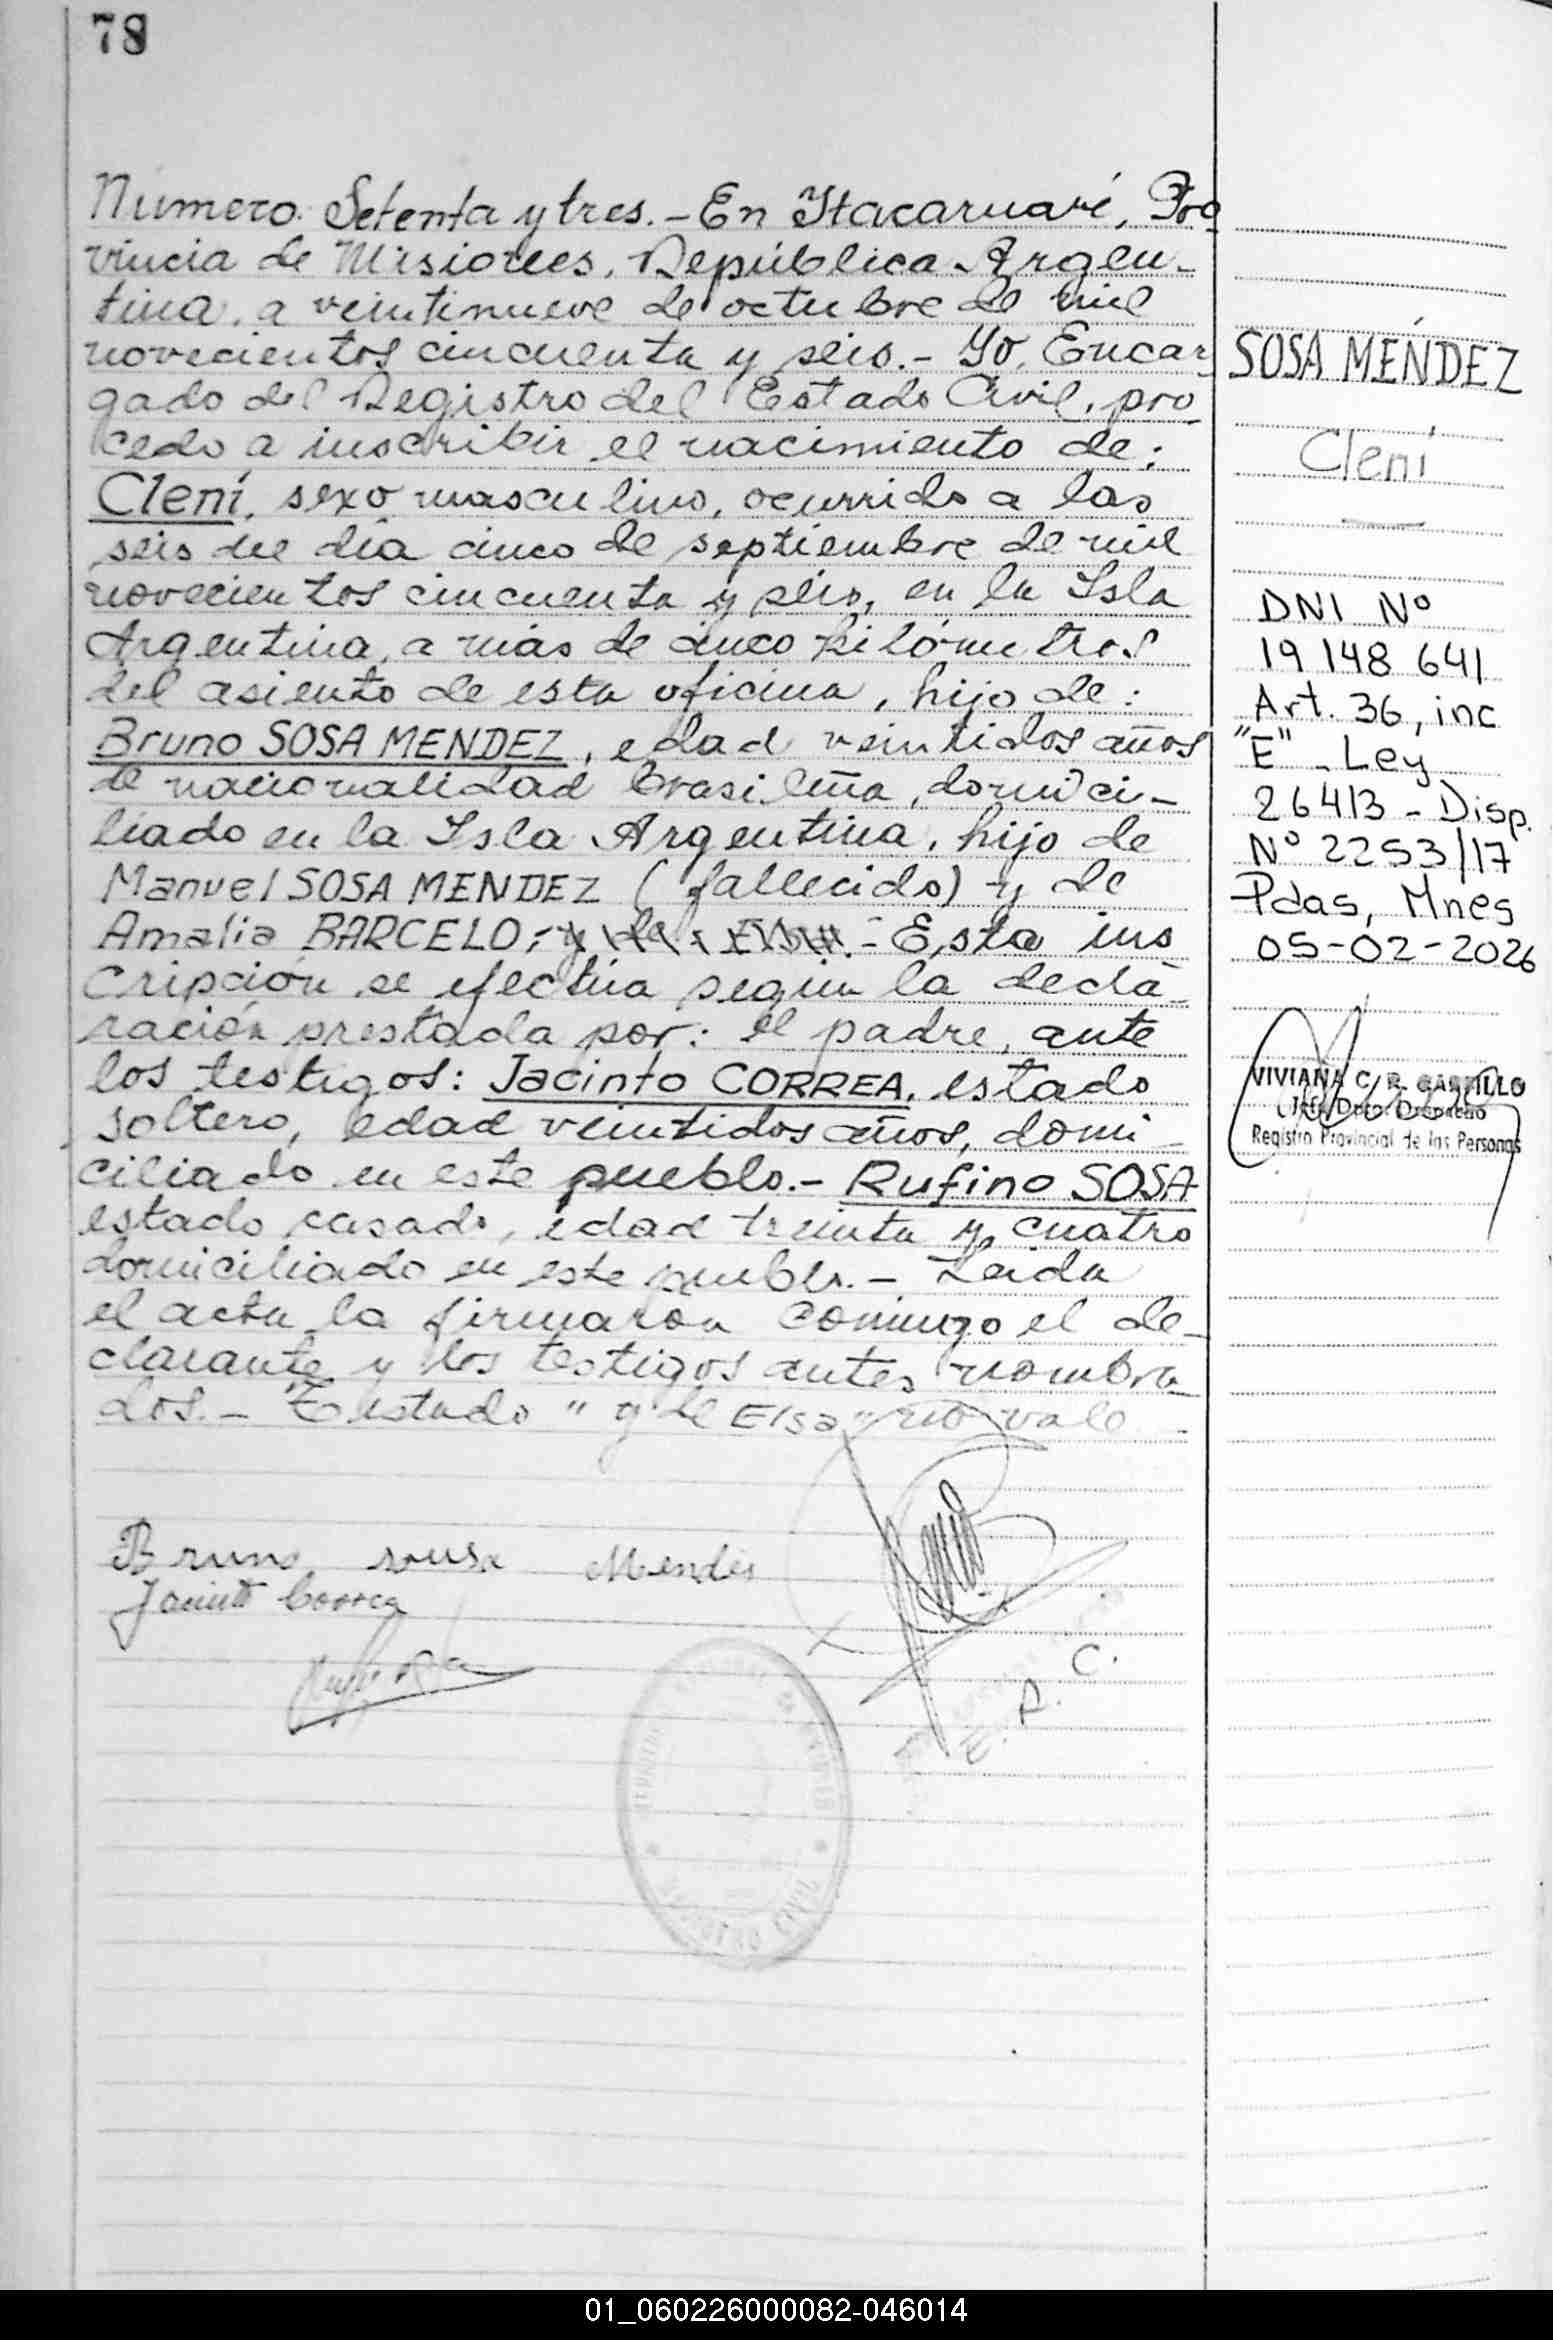 78
Número Setenta y tres.- En Itacaruaré, Pro
vincia de Misiones, República Argen-
tina, a veintinueve de octubre de mil
novecientos cincuenta y seis.- Yo, Encar
gado del Registro del Estado Civil, pro
cedo a inscribir el nacimiento de:
Clení, sexo masculino, ocurrido a las
seis del día cinco de septiembre de mil
novecientos cincuenta y seis, en la Isla
Argentina, a más de cinco kilómetros
del asiento de esta oficina, hijo de:
Bruno SOSA MENDEZ, edad veintidos años
de nacionalidad brasileña, domici-
liado en la Isla Argentina, hijo de
Manuel SOSA MENDEZ (fallecido) y de
Amalia BARCELO,- y de Elsa.- Esta ins
cripción se efectúa según la decla-
ración prestada por: el padre, ante
los testigos: Jacinto CORREA, estado
soltero, edad veintidos años, domi-
ciliado en este pueblo.- Rufino SOSA
estado casado, edad treinta y cuatro
domiciliado en este pueblo.- Leída
el acta la firmarón conmigo el de-
clarante y los testigos antes nombra-
dos.- Testado " y de Elsa" no vale
Bruno sousa Mendes
Jacinto Correa
E. R. C.
REGISTRO CIVIL
SOSA MÉNDEZ
Clení
DNI Nº
19 148 641
Art. 36, inc
"E" - Ley
26413 - Disp.
Nº 2253/17
Pdas, Mnes
05-02-2026
VIVIANA C. R. CASTILLO
Jefe Dpto. Despacho
Registro Provincial de las Personas
01_060226000082-046014